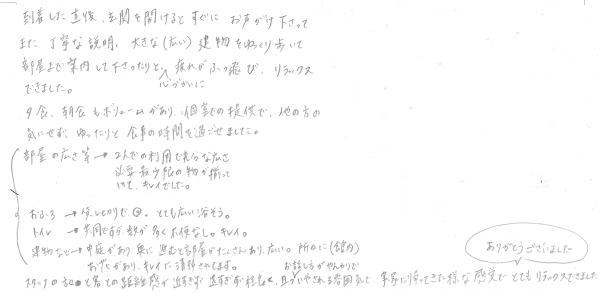 到着した直後、玄関を開けるとすぐに お声がけ下さって
また 丁寧な説明、大きな(広い) 建物をゆっくり歩いて
部屋まで案内して下さったりと、疲れがふっ飛び、リラックス
心づかいに
できました。
夕食、朝食もボリュームがあり、個室での提供で、他の方の
気にせず、ゆったりと食事の時間を過ごせました。
部屋の広さ等→2人での利用で充分な広さ
必要最少限の物が揃って
いて、キレイでした。
おふろ→貸し切りで◎。とても広い浴そう。
トイレ→共同ですが 数が多く不便なし。キレイ。
建物など→中庭があり、奥に進むと部屋がたくさんあり、広い。所々に(館内)
お花があり、キレイに清掃されてます。
スタッフの方の 客との距離感が近すぎず 遠すぎず 程よく、話しかけやすい雰囲気で 実家に帰ってきた様な感覚で とてもリラックスできました
ありがとうございました